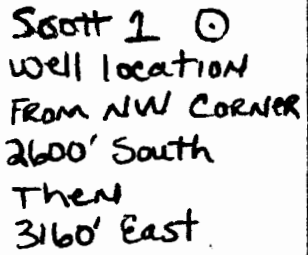 Scott 1 ⊙
Well location
From NW Corner
2600' South
Then
3160' East